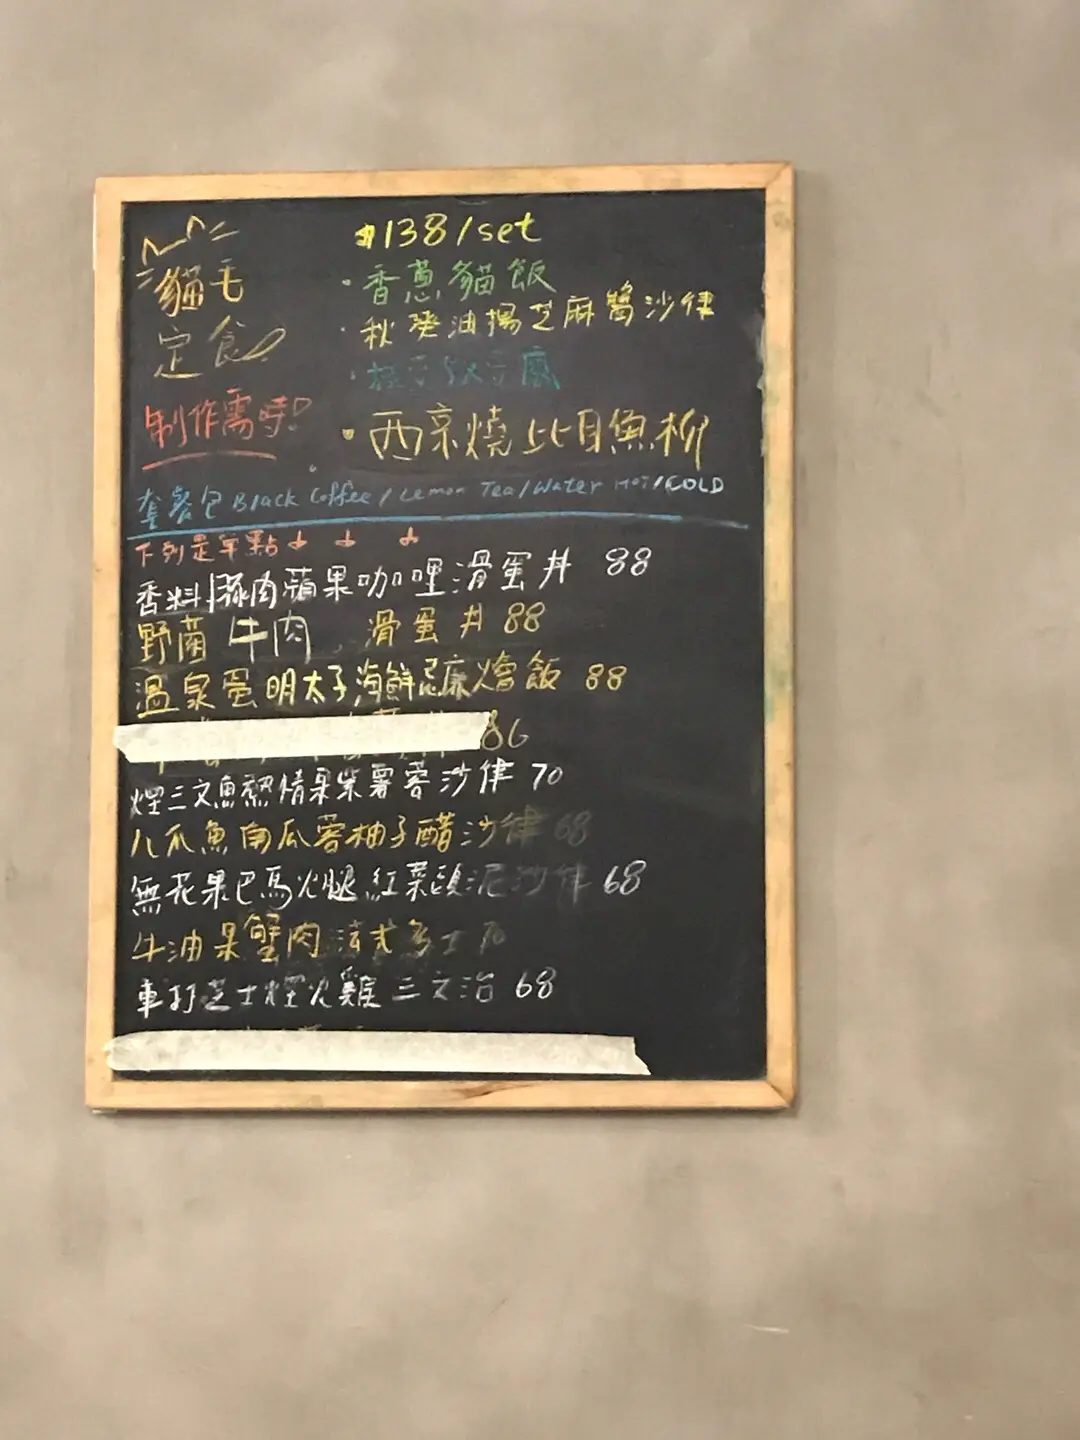 貓毛
定食
制作需時!
$138/set
·香蔥貓飯
·秋葵油揚芝麻醬沙律
·西京燒比目魚柳
套餐包 Black Coffee/Lemon Tea/Water HOT/COLD
下列是單點
香料豚肉蘋果咖哩滑蛋丼 88
野菌牛肉 滑蛋丼 88
温泉蛋明太子海鮮忌廉燴飯 88
86
煙三文魚熱情果紫薯蓉沙律 70
八爪魚南瓜蓉柚子醋沙律 68
無花果巴馬火腿紅菜頭泥沙律 68
牛油果蟹肉法式多士 70
車打芝士煙火雞三文治 68